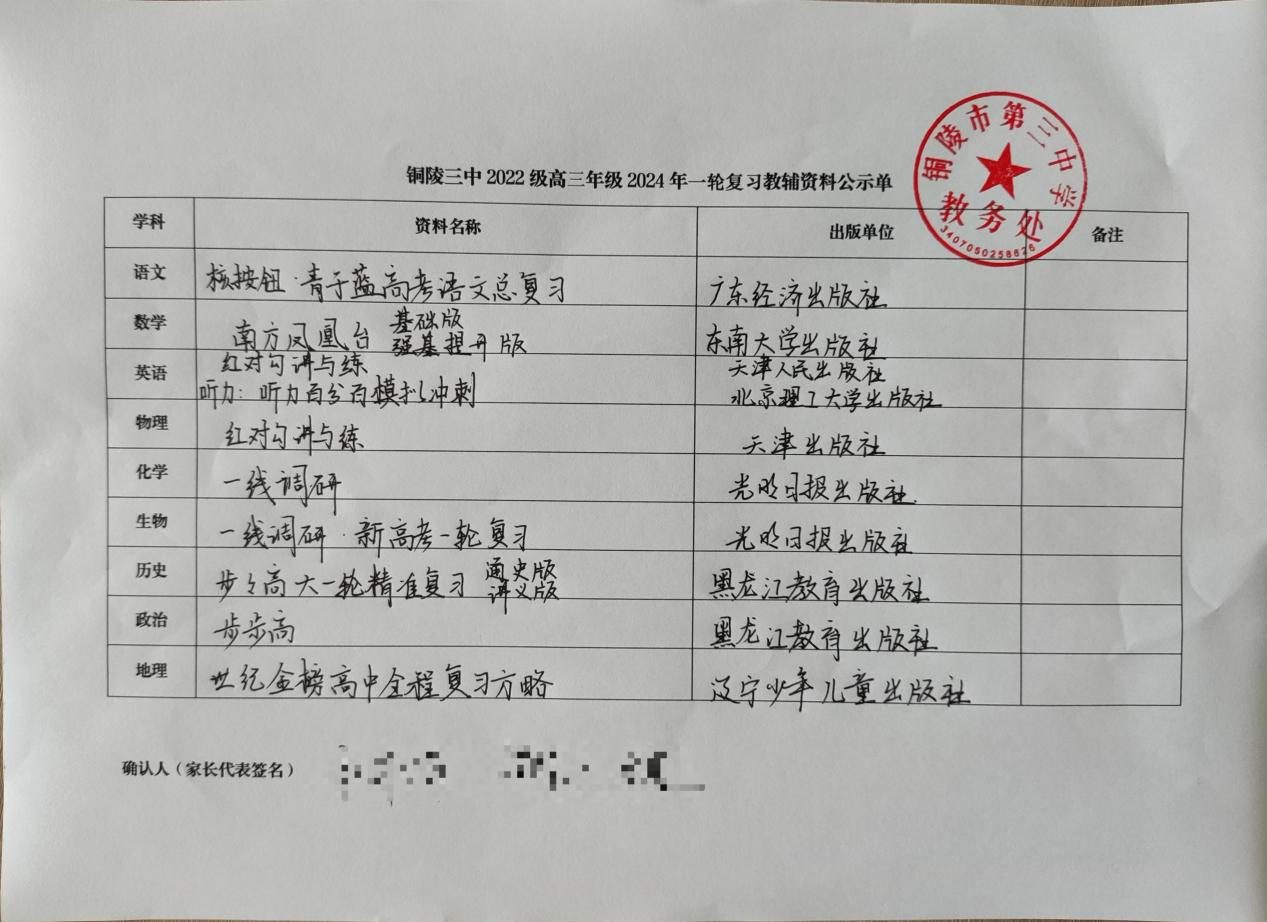 铜陵市第三中学
教务处
3407050258626
铜陵三中 2022 级高三年级 2024 年一轮复习教辅资料公示单
学科 资料名称 出版单位 备注
语文 核按钮·青于蓝高考语文总复习 广东经济出版社
数学 南方凤凰台 基础版 强基提升版 东南大学出版社
英语 红对勾讲与练 天津人民出版社
听力：听力百分百模拟冲刺 北京理工大学出版社
物理 红对勾讲与练 天津出版社
化学 一线调研 光明日报出版社
生物 一线调研·新高考一轮复习 光明日报出版社
历史 步々高大一轮精准复习 通史版 讲义版 黑龙江教育出版社
政治 步步高 黑龙江教育出版社
地理 世纪金榜高中全程复习方略 辽宁少年儿童出版社
确认人（家长代表签名）